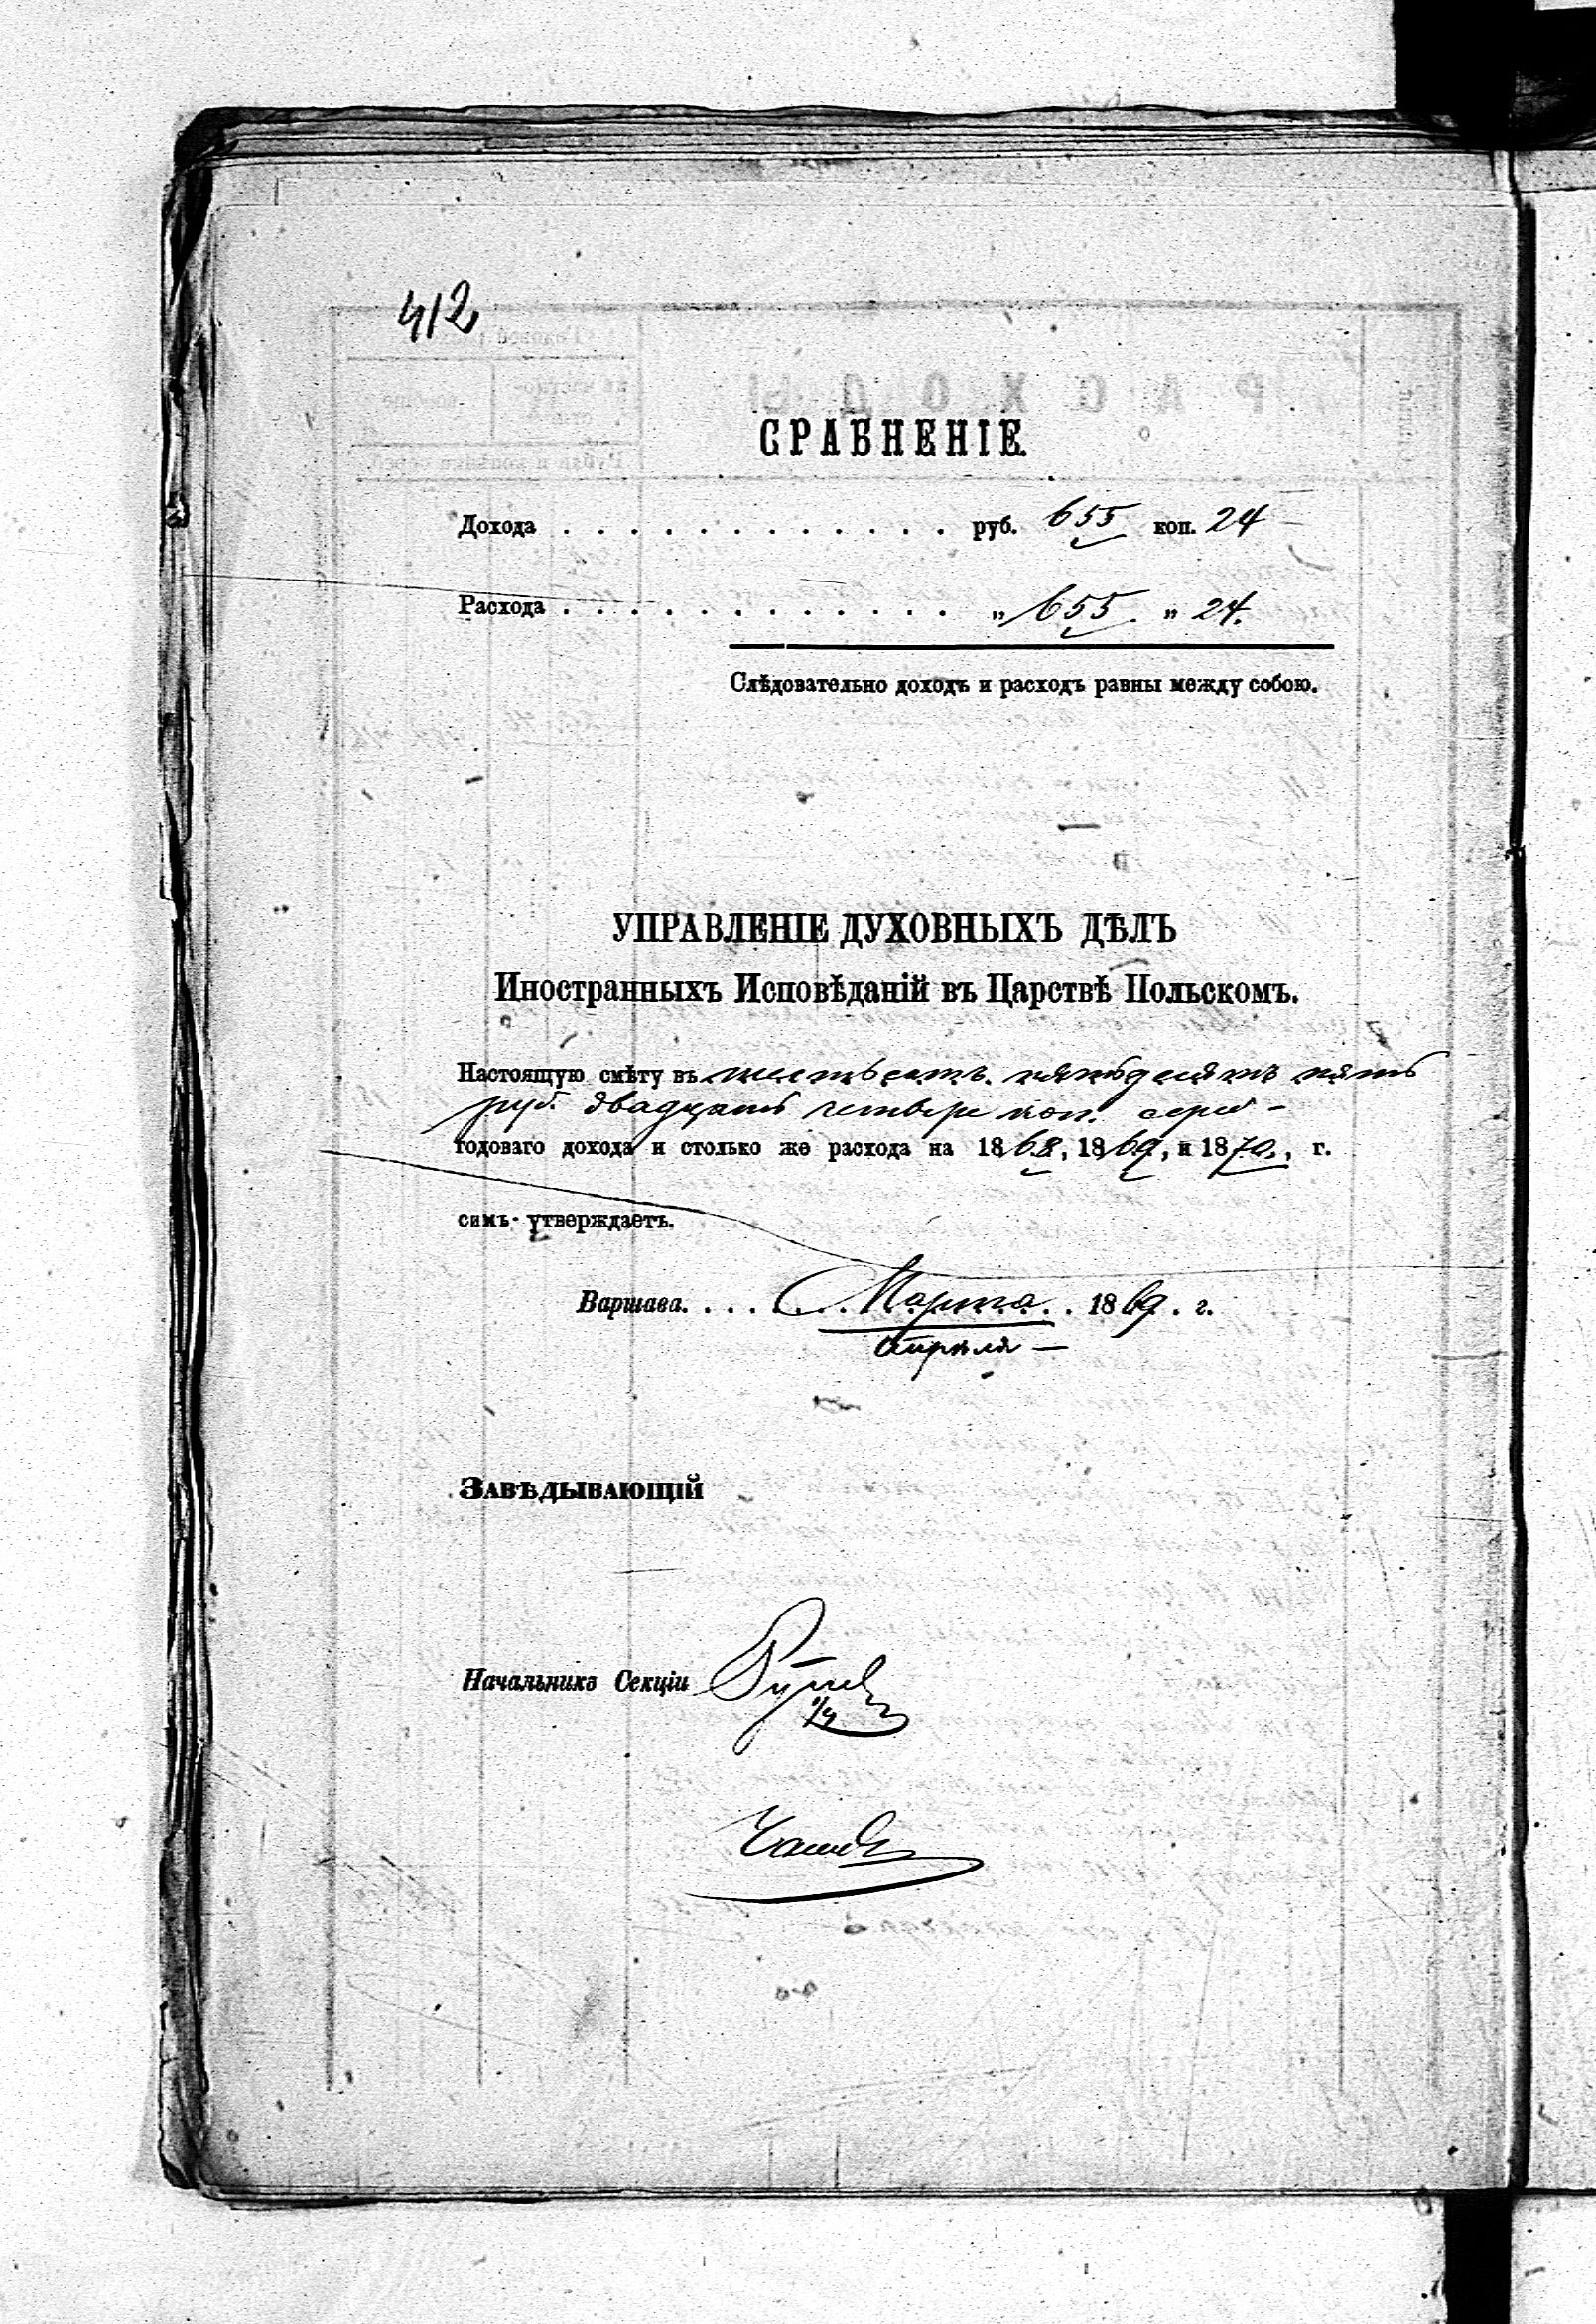 412
СРАВНЕНІЕ.
Дохода . . . . . . . . . . . . руб. 655 коп. 24
Расхода . . . . . . . . . . . . „ 655. „ 24.
Слѣдовательно доходъ и расходъ равны между собою.
УПРАВЛЕНІЕ ДУХОВНЫХЪ ДѢЛЪ
Иностранныхъ Исповѣданій въ Царствѣ Польскомъ.
Настоящую смѣту въ шестьсотъ пятьдесятъ пять
руб. двадцать четыре коп. сереб-
годоваго дохода и столько же расхода на 1868, 1869, и 1870, г.
симъ утверждаетъ.
Варшава. . . . . . . . Марта . . 1869 . г.
Апрѣля —
Завѣдывающій
Начальникъ Секціи